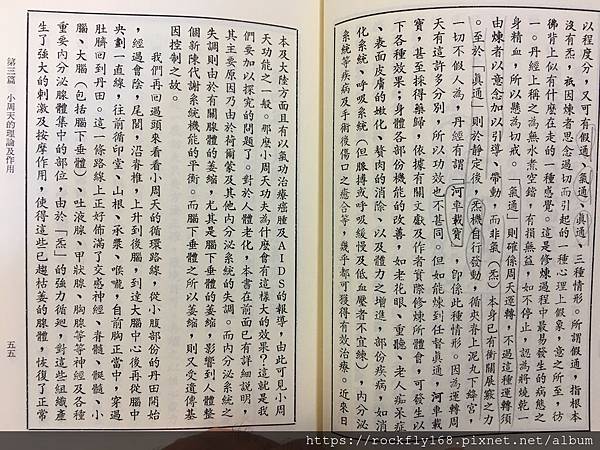 以程度分，又可有假通、氣通、眞通、三種情形。所謂假通，指根本
沒有炁，祇因煉者思念過切而引起的一種心理上假象，意之所至，彷
彿背上似有什麼在走的一種感覺。這是修煉過程中最易發生的病態之
一。丹經上稱之為無水煮空鐺，有損無益，如不停止，認為將燒乾一
身精血，所以懸為切戒。「氣通」則確係周天運轉，不過這種運轉須
由煉者以意念加以引導、帶動，而非氣（炁）本身已有衝關展竅之力
。至於「眞通」則於靜定後，炁機自行發動，循夾脊上泥丸下絳宮，
一切不假人為，丹經有謂「河車載寶」，即係此種情形。因為運轉周
天有這許多分別，所以功效也不甚同。但如能煉到任督眞通，河車載
寶，甚至採得藥歸，依據有關文獻及作者實際修煉所體會，可發生以
下各種效果：身體各部份機能的改善，如老花眼、重聽、老人痴呆症
、表面皮膚的嫩化、贅肉的消除、以及體力之增進，部份疾病，如消
化系統、呼吸系統（但肺搏或呼吸緩慢及低血壓者不宜練），內分泌
系統等疾病及手術後傷口之癒合等，幾乎都可獲得有效治療。近來日
本及大陸方面且有以氣功治療癌腫及AIDS的報導，由此可見小周
天功能之一般。那麼小周天功夫為什麼會有這樣大的效果？這就是我
們要加以探究的問題了。對於人體老化，本書在前面已有詳細說明，
其主要原因乃由於荷爾蒙及其他內分泌系統的失調。而內分泌系統之
失調則由於有關腺體的萎縮，尤其是腦下垂體的萎縮，影響到人體整
個新陳代謝系統機能的平衡。而腦下垂體之所以萎縮，則又受遺傳基
因控制之故。
我們再回過頭來看看小周天的循環路線，從小腹部份的丹田開始
，經過會陰，尾閭，沿脊椎，上升到後腦，到達大腦中心後再從腦中
央劃一直線，往前循印堂、山根、承漿、喉嚨，自前胸正當中，穿過
肚臍回到丹田。這一條路線上正好佈滿了交感神經、脊髓、髓髓、小
腦、大腦（包括腦下垂體）、吐液腺、甲狀腺、胸腺等等神經及各種
重要內分泌腺體集中的部位，由於「炁」的強力循廻，對這些組織產
生了強大的刺激及按摩作用，使得這些已趨枯萎的腺體，恢復了正常
第三篇　小周天的理論及作用
五五
https://rockfly168.pixnet.net/album